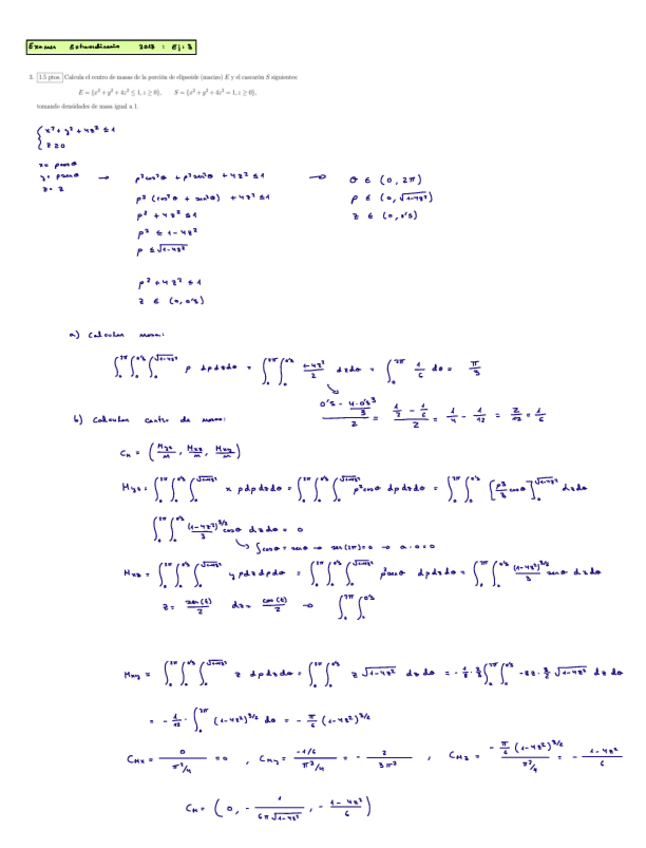 Examen Extraordinario 2018 : Ej: 3
3. 1.5 ptos. Calcula el centro de masas de la porción de elipsoide (macizo) E y el cascarón S siguientes:
E = {x² + y² + 4z² ≤ 1, z ≥ 0}, S = {x² + y² + 4z² = 1, z ≥ 0},
tomando densidades de masa igual a 1.
{ x² + y² + 4z² ≤ 1
z ≥ 0
x = ρcosθ
y = ρsenθ → ρ²cos²θ + ρ²sen²θ + 4z² ≤ 1 → θ ∈ (0, 2π)
z = z
ρ² (cos²θ + sen²θ) + 4z² ≤ 1 ρ ∈ (0, √1-4z²)
ρ² + 4z² ≤ 1 z ∈ (0, 0'5)
ρ² ≤ 1-4z²
ρ ≤ √1-4z²
ρ² + 4z² ≤ 1
z ∈ (0, 0'5)
a) Calcular masa:
∫₀^2π ∫₀^0'5 ∫₀^√1-4z² ρ dρdzdθ = ∫₀^2π ∫₀^0'5 (1-4z²)/2 dzdθ = ∫₀^2π 1/6 dθ = π/3
(0'5 - 4·0'5³/3)/2 = (1/2 - 1/6)/2 = 1/4 - 1/12 = 2/12 = 1/6
b) Calcular centro de masa:
C_M = (Myz/m, Mxz/m, Mxy/m)
Myz = ∫₀^2π ∫₀^0'5 ∫₀^√1-4z² x ρdρdzdθ = ∫₀^2π ∫₀^0'5 ∫₀^√1-4z² ρ²cosθ dρdzdθ = ∫₀^2π ∫₀^0'5 [ρ³/3 cosθ]₀^√1-4z² dzdθ
∫₀^2π ∫₀^0'5 (1-4z²)^3/2/3 cosθ dzdθ = 0
∫cosθ = senθ → sen(2π) = 0 → a·0 = 0
Mxz = ∫₀^2π ∫₀^0'5 ∫₀^√1-4z² y ρdzdρdθ = ∫₀^2π ∫₀^0'5 ∫₀^√1-4z² ρ²senθ dρdzdθ = ∫₀^2π ∫₀^0'5 (1-4z²)^3/2/3 senθ dzdθ
z = sen(t)/2 dz = cos(t)/2 → ∫₀^2π ∫₀^0'5
Mxy = ∫₀^2π ∫₀^0'5 ∫₀^√1-4z² z dρdzdθ = ∫₀^2π ∫₀^0'5 z√1-4z² dzdθ = -1/8·2/3 ∫₀^2π ∫₀^0'5 -8z·3/2 √1-4z² dzdθ
= -1/12 · ∫₀^2π (1-4z²)^3/2 dθ = -π/6 (1-4z²)^3/2
C_Mx = 0/(π³/4) = 0 , C_My = (-1/6)/(π³/4) = -2/3π³ , C_Mz = (-π/6 (1-4z²)^3/2)/(π³/4) = -(1-4z²)/6
C_M = (0, -1/(6π√1-4z²), -(1-4z²)/6)